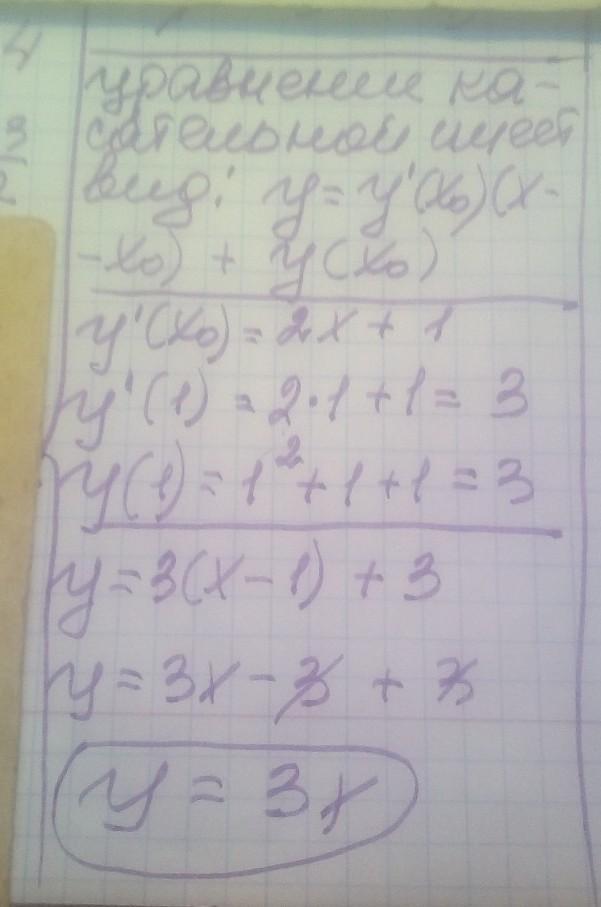 4
3
2
уравнение ка-
сательной имеет
вид: y = y'(x₀)(x-
-x₀) + y(x₀)
y'(x₀) = 2x + 1
y'(1) = 2·1 + 1 = 3
y(1) = 1² + 1 + 1 = 3
y = 3(x - 1) + 3
y = 3x - 3 + 3
y = 3x